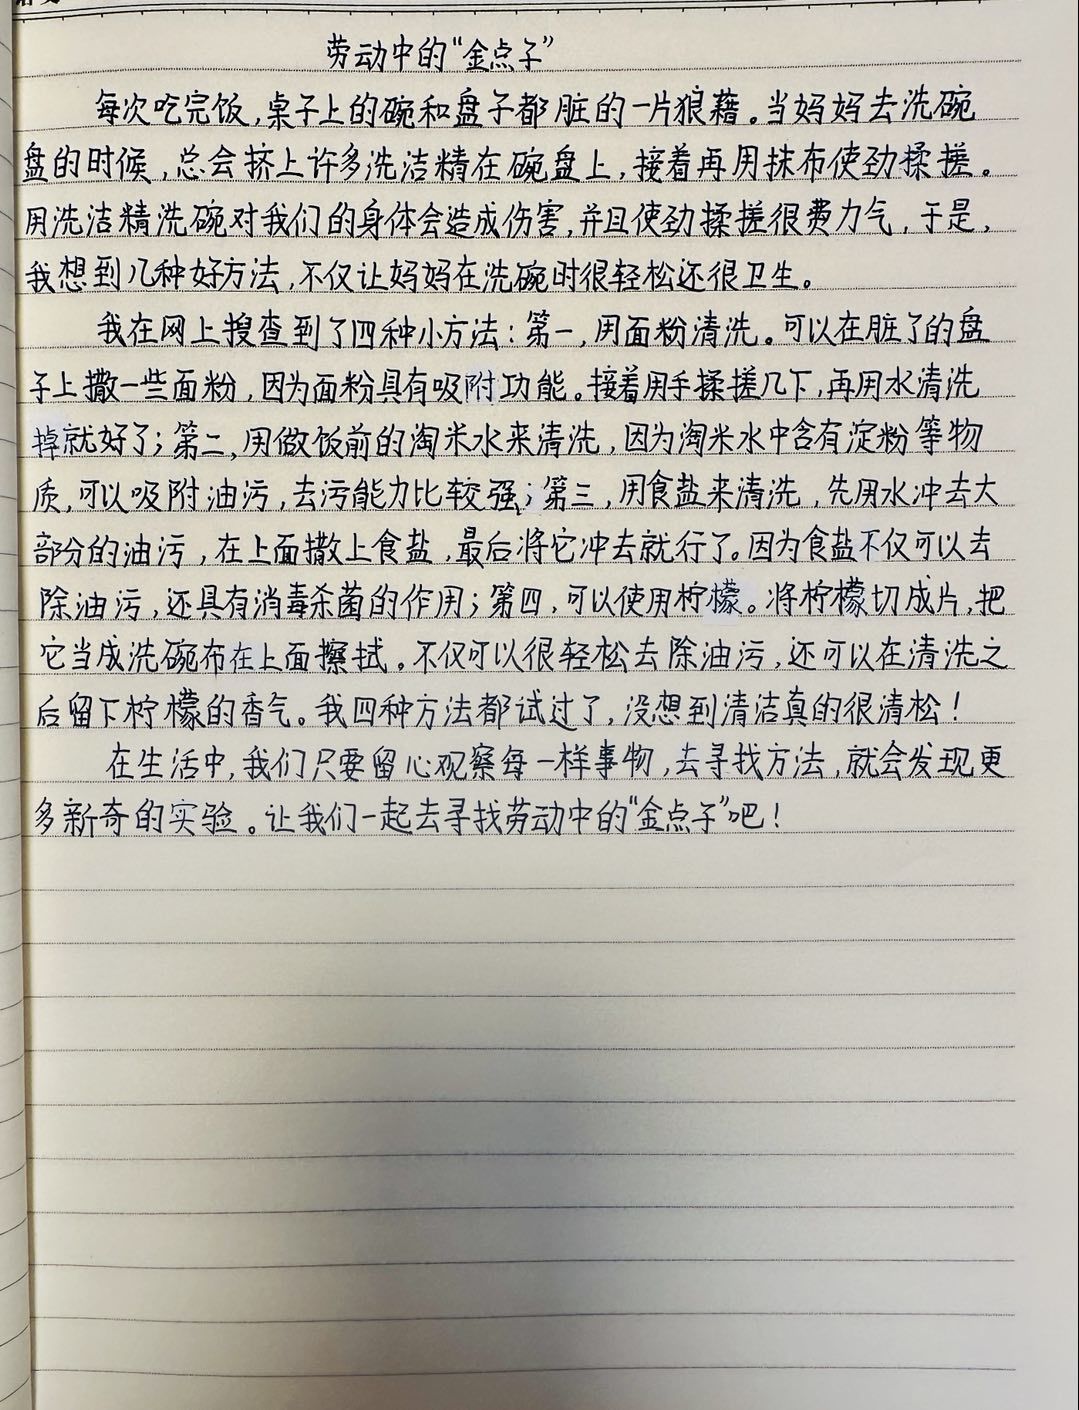 劳动中的“金点子”
每次吃完饭,桌子上的碗和盘子都脏的一片狼藉。当妈妈去洗碗
盘的时候,总会挤上许多洗洁精在碗盘上,接着再用抹布使劲揉搓。
用洗洁精洗碗对我们的身体会造成伤害,并且使劲揉搓很费力气,于是,
我想到几种好方法,不仅让妈妈在洗碗时很轻松还很卫生。
我在网上搜查到了四种小方法:第一,用面粉清洗。可以在脏了的盘
子上撒一些面粉,因为面粉具有吸附功能。接着用手揉搓几下,再用水清洗
掉就好了;第二,用做饭前的淘米水来清洗,因为淘米水中含有淀粉等物
质,可以吸附油污,去污能力比较强;第三,用食盐来清洗,先用水冲去大
部分的油污,在上面撒上食盐,最后将它冲去就行了。因为食盐不仅可以去
除油污,还具有消毒杀菌的作用;第四,可以使用柠檬。将柠檬切成片,把
它当成洗碗布在上面擦拭。不仅可以很轻松去除油污,还可以在清洗之
后留下柠檬的香气。我四种方法都试过了,没想到清洁真的很清松!
在生活中,我们只要留心观察每一样事物,去寻找方法,就会发现更
多新奇的实验。让我们一起去寻找劳动中的“金点子”吧!